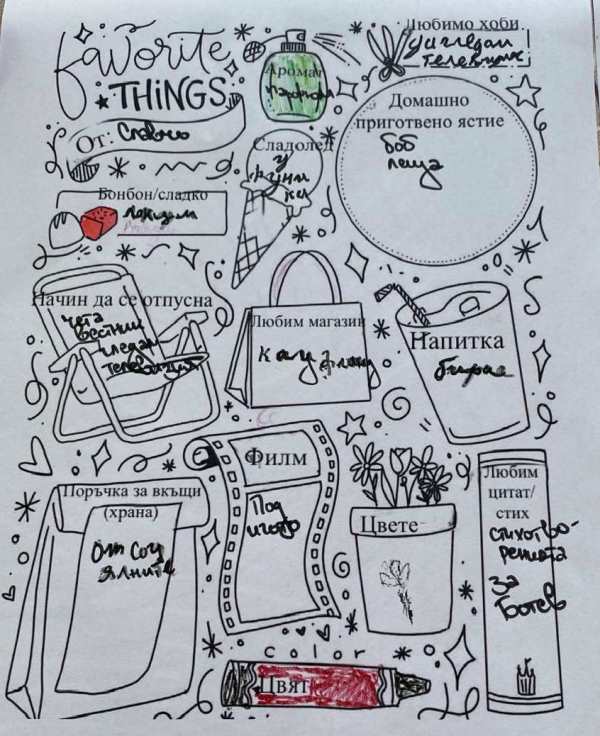 Favorite
THiNGS
От: Славчо
Аромат
Любимо хоби
гледам
телевизия
Домашно
приготвено ястие
боб
леща
Сладолед
Бонбон/сладко
локум
Начин да се отпусна
чета
вестник
гледам
телевизия
Любим магазин
Кауфланд
Напитка
бира
Поръчка за вкъщи
(храна)
От соц
Филм
Под
игото
Цвете
Любим
цитат/
стих
стихотво-
ренията
за
Ботев
color
Цвят